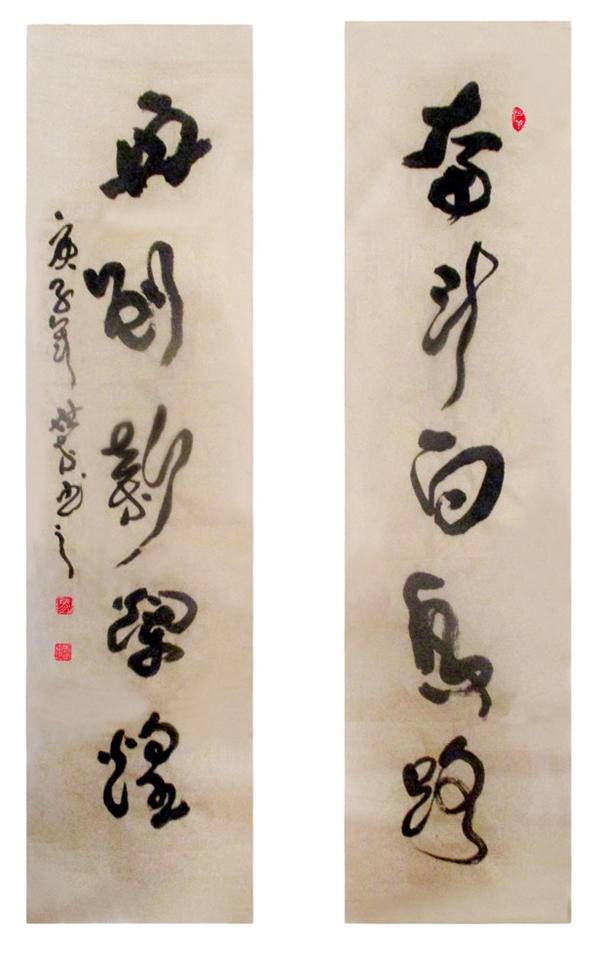 奋斗百路
再创新辉煌
庚子年书之